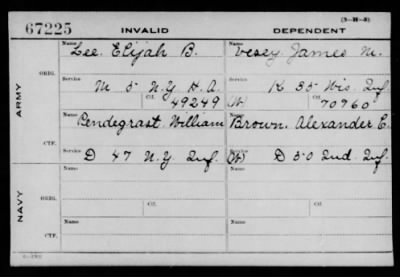 (3-H-3)
67225 INVALID DEPENDENT
Name Name
Lee, Elijah B. Vesey James M.
ORIG. Service Service
M 5 N.Y. H.A. K 35 Wis. Inf.
Ctf. Ctf.
49249 (W) 70760
ARMY
Name Name
Pendegrast, William Brown, Alexander E.
CTF. Service Service
D 47 N.Y. Inf. (W) D 50 Ind. Inf.
Name Name
ORIG. Service Ctf. Service Ctf.
NAVY
Name Name
CTF. Service Service